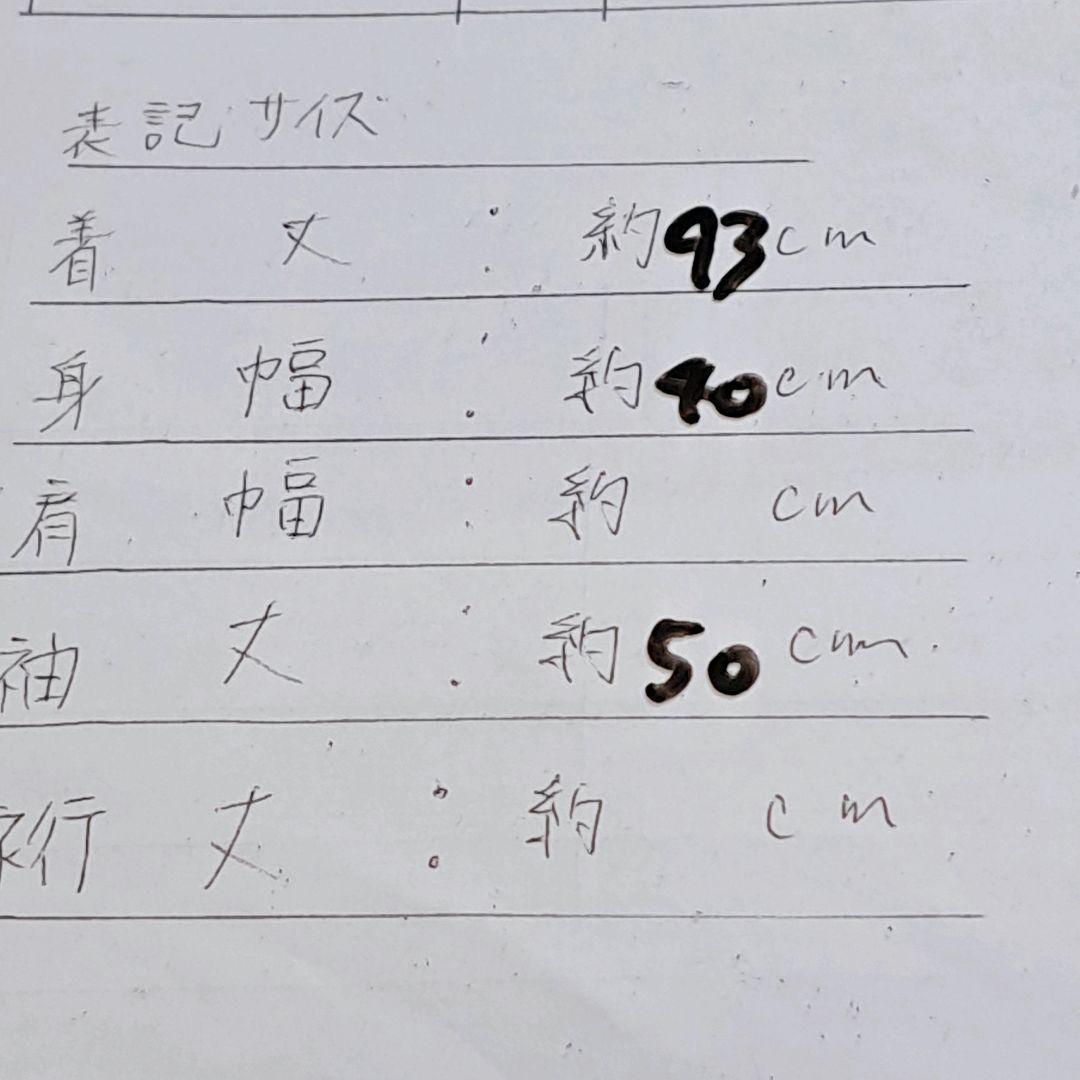 表記サイズ
着丈:約93cm
身幅:約40cm
肩幅:約 cm
袖丈:約50cm
裄丈:約 cm